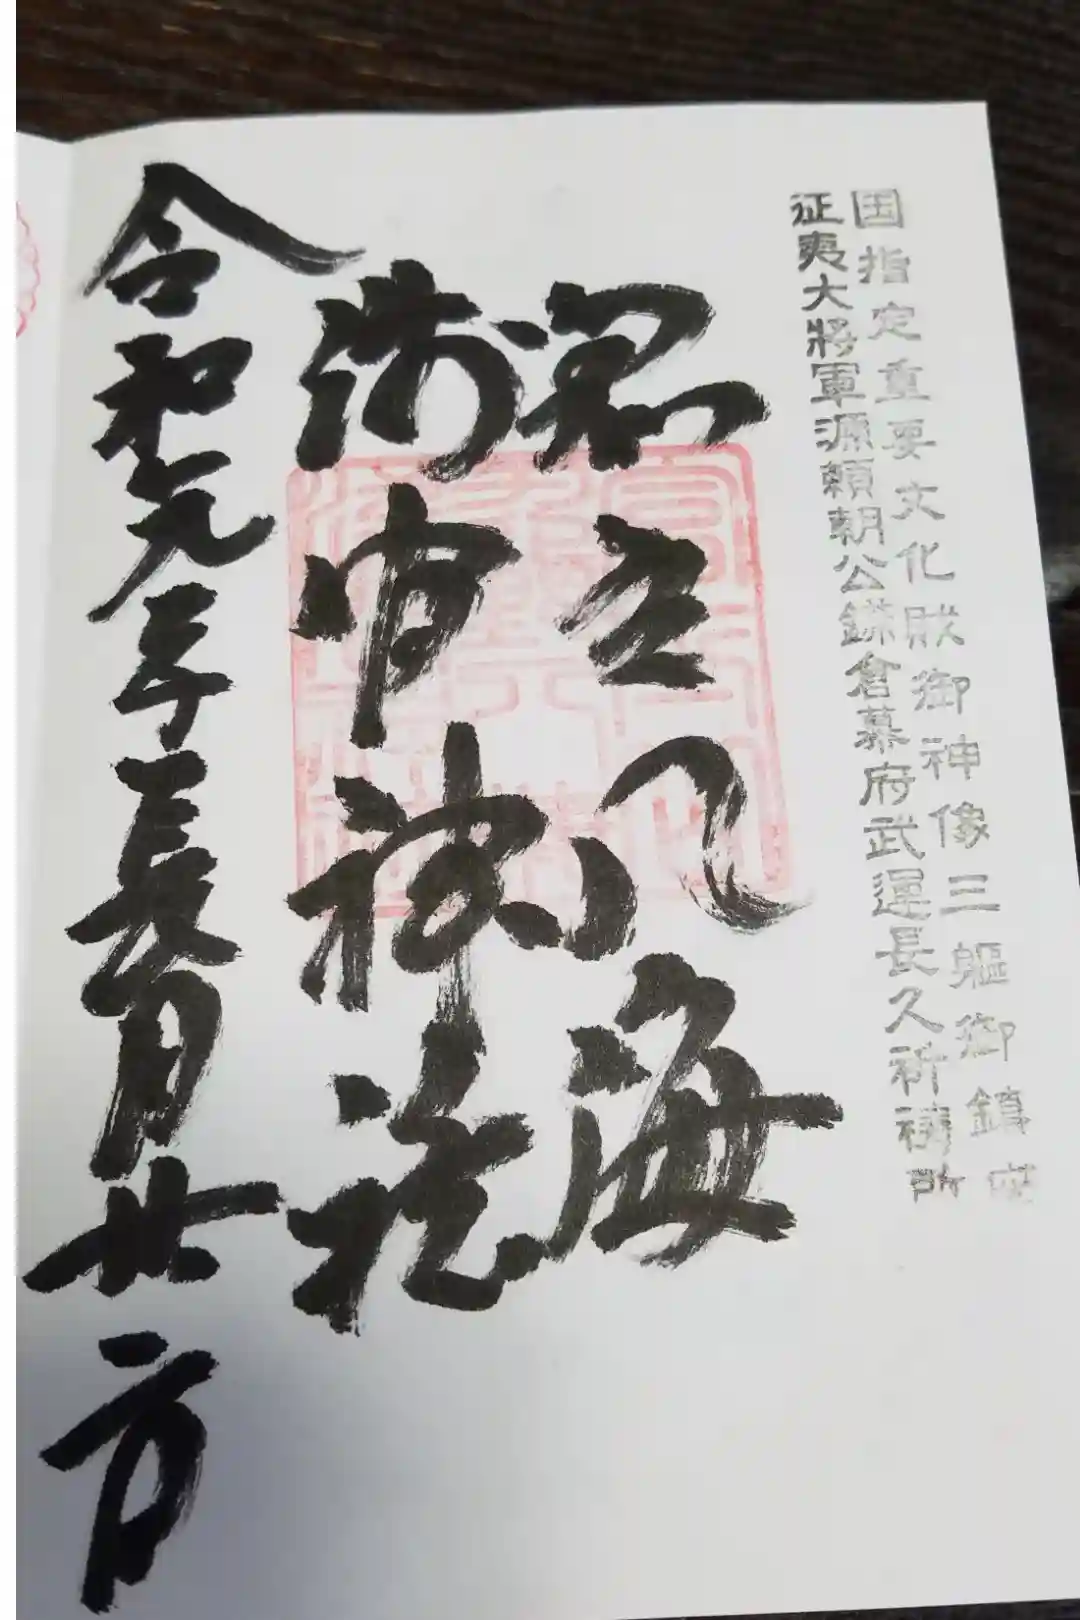 国指定重要文化財御神像三躯御鎮座
征夷大将軍源頼朝公鎌倉幕府武運長久祈祷所
八海
浅間神社
令和元年長月廿